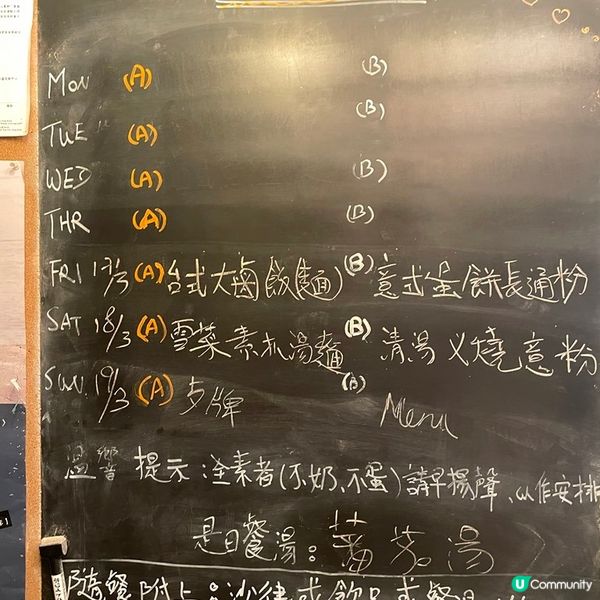 MON (A) (B)
TUE (A) (B)
WED (A) (B)
THR (A) (B)
FRI 17/3 (A) 台式大鹵飯(麵) (B) 意式蛋餅長通粉
SAT 18/3 (A) 雪菜素扒湯麵 (B) 清湯叉燒意粉
SUN 19/3 (A) 歺牌 (B) Menu
溫響提示:全素者(不奶、不蛋)請早揚聲、以作安排
是日餐湯:蕃茄湯
隨餐附上:沙律或飲品或餐
U Community